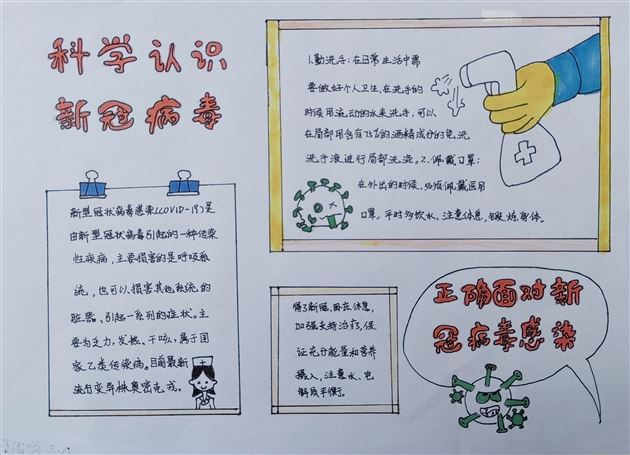 科学认识
新冠病毒
新型冠状病毒感染(COVID-19)是
由新型冠状病毒引起的一种传染
性疾病，主要损害的是呼吸系
统，也可以损害其他系统的
脏器、引起一系列的症状。主
要为乏力，发热、干咳，属于国
家乙类传染病。目前最新
流行变异株奥密克戎。
1.勤洗手：在日常生活中需
要做好个人卫生，在洗手的
时候用流动的水来洗手，可以
在局部用含有75%的酒精成分的免洗
洗手液进行局部洗涤。2.佩戴口罩：
在外出的时候，必须佩戴医用
口罩。平时多饮水，注意休息，锻炼身体。
得了新冠，卧床休息，
加强支持治疗，保
证充分能量和营养
摄入，注意水、电
解质平衡。
正确面对新
冠病毒感染